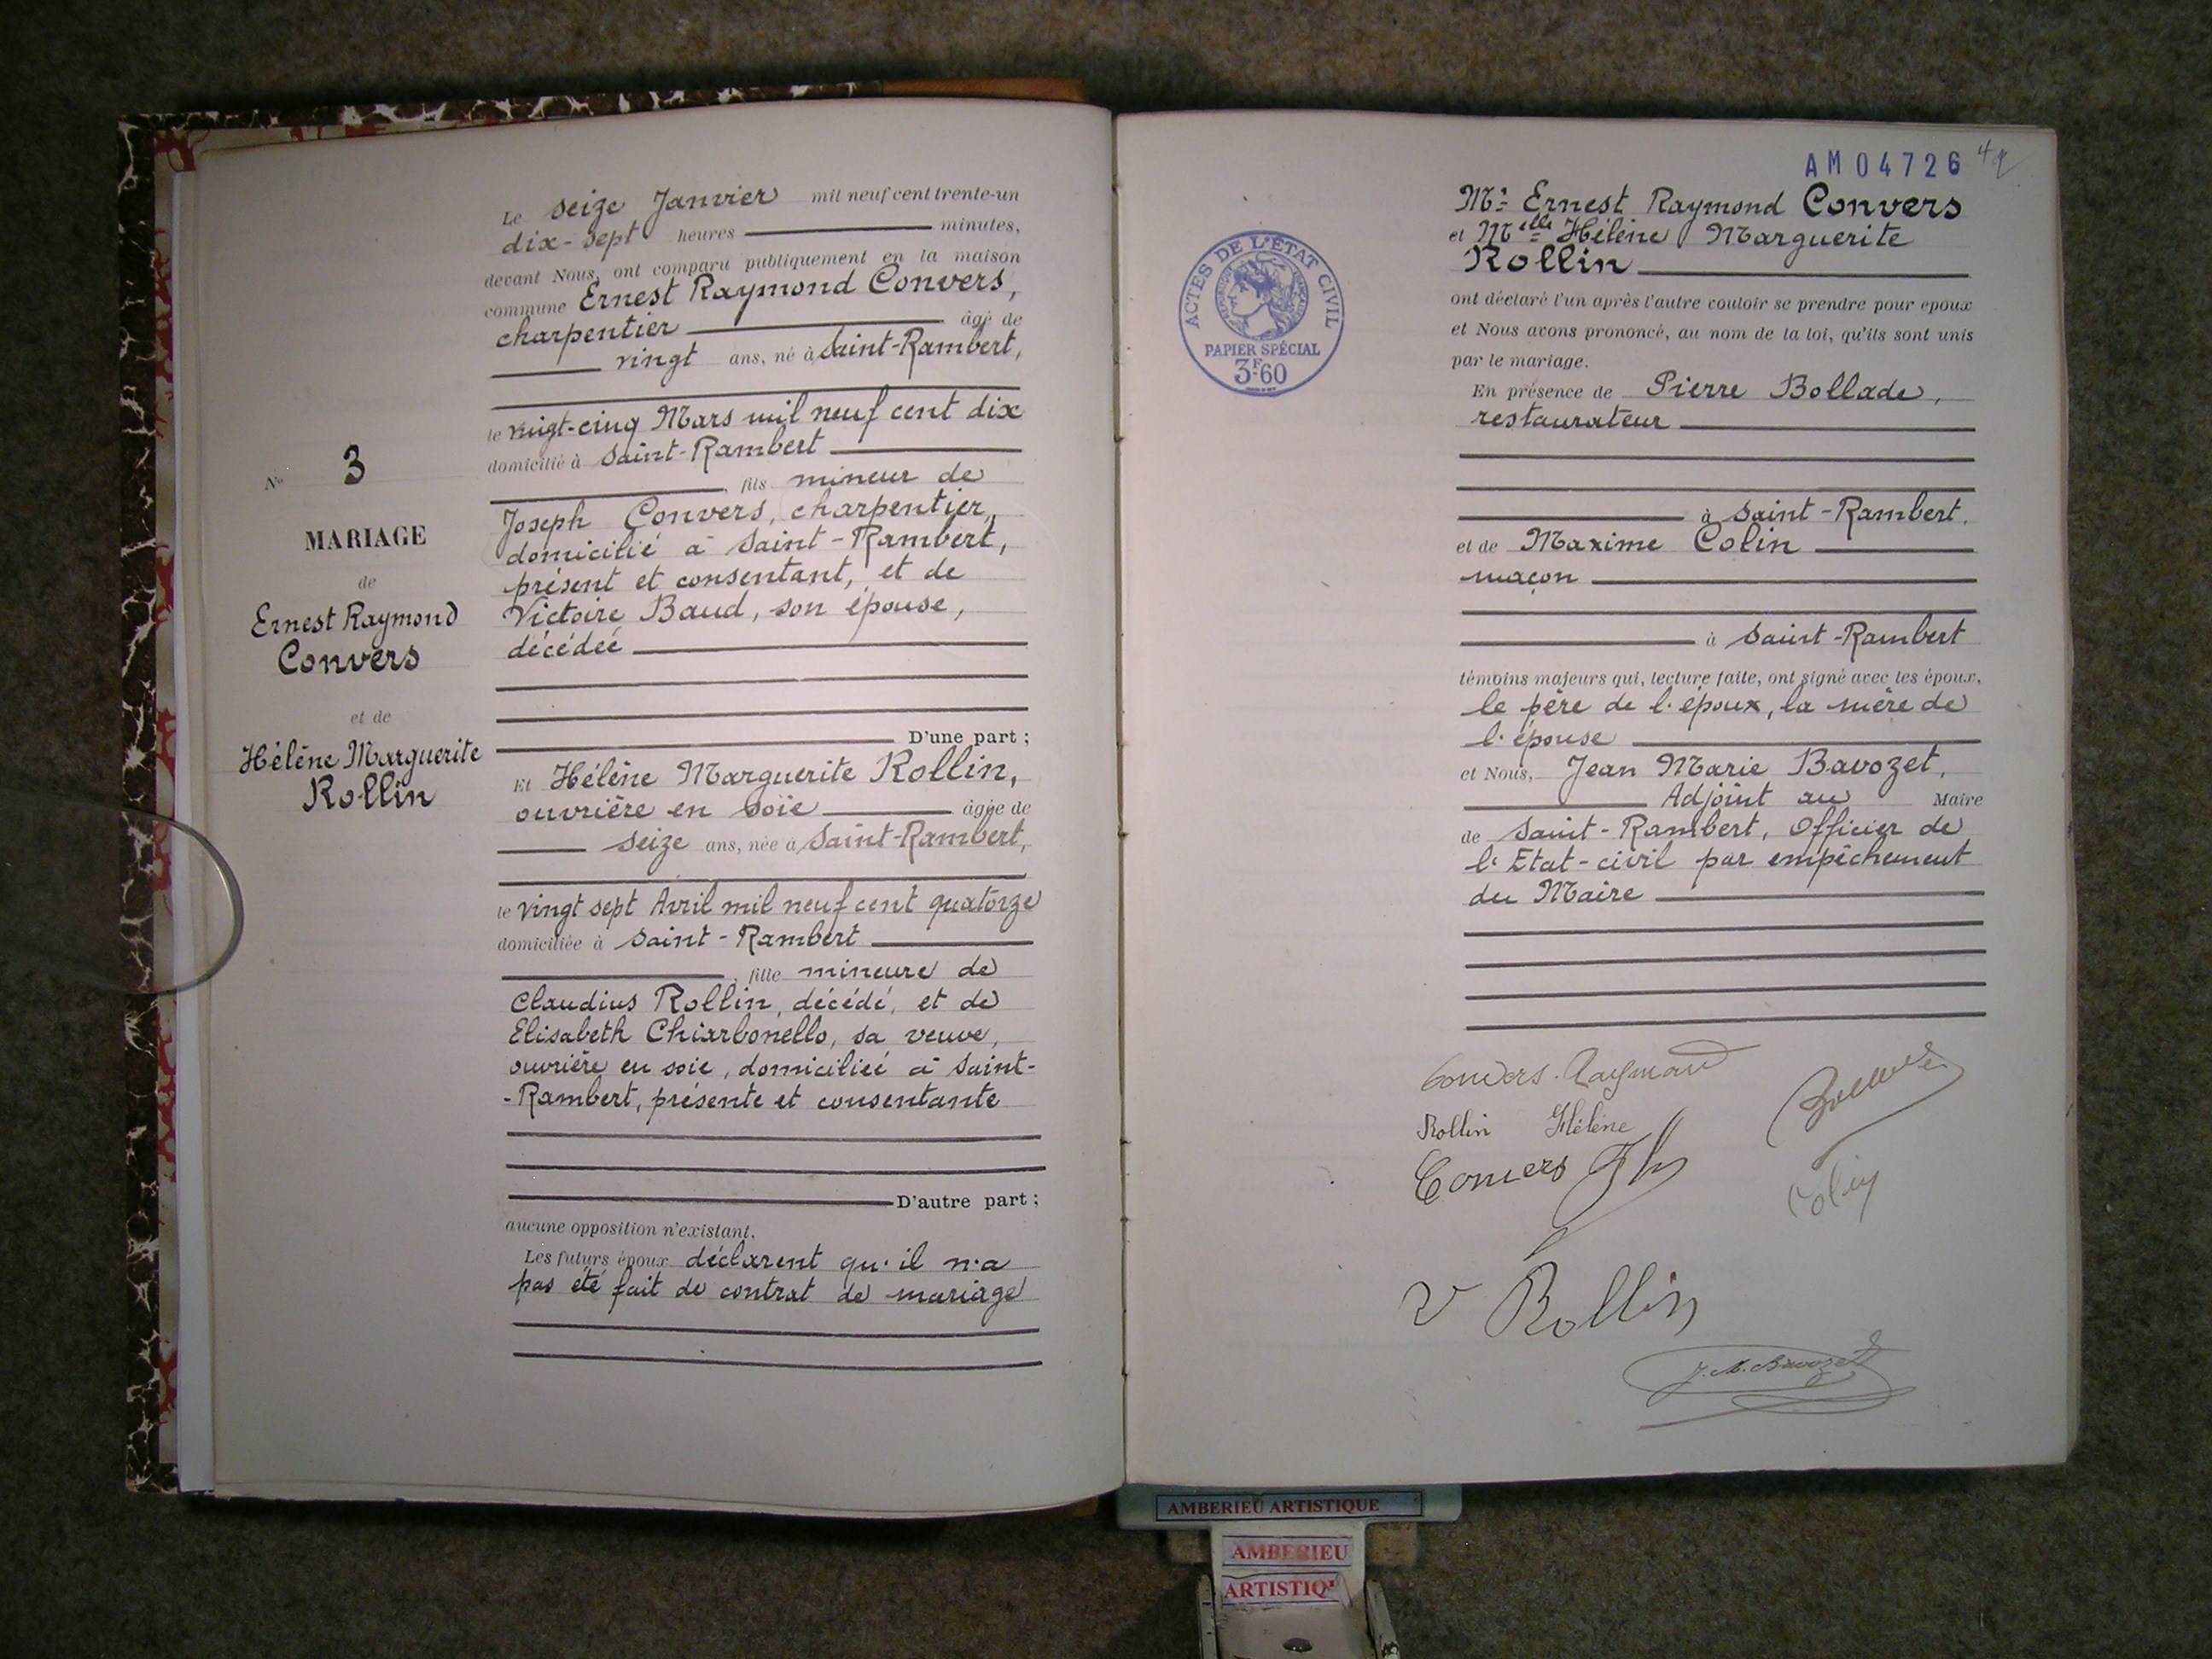 Le seize Janvier mil neuf cent trente-un
dix-sept heures minutes,
devant Nous, ont comparu publiquement en la maison
commune Ernest Raymond Convers,
charpentier âgé de
vingt ans, né à Saint-Rambert,
le vingt-cinq Mars mil neuf cent dix
domicilié à Saint-Rambert
, fils mineur de
Joseph Convers, charpentier,
domicilié à Saint-Rambert,
présent et consentant, et de
Victoire Baud, son épouse,
décédée
D'une part ;
N° 3
MARIAGE
de
Ernest Raymond
Convers
et de
Hélène Marguerite
Rollin
Et Hélène Marguerite Rollin,
ouvrière en soie âgée de
seize ans, née à Saint-Rambert,
le vingt sept Avril mil neuf cent quatorze
domiciliée à Saint-Rambert
, fille mineure de
Claudius Rollin, décédé, et de
Elisabeth Chiarbonello, sa veuve,
ouvrière en soie, domiciliée à Saint-
-Rambert, présente et consentante
D'autre part ;
aucune opposition n'existant,
Les futurs époux déclarent qu'il n'a
pas été fait de contrat de mariage
AM04726
ACTES DE L'ETAT CIVIL
PAPIER SPÉCIAL
3F60
Mr Ernest Raymond Convers
et Melle Hélène Marguerite
Rollin
ont déclaré l'un après l'autre vouloir se prendre pour epoux
et Nous avons prononcé, au nom de la loi, qu'ils sont unis
par le mariage.
En présence de Pierre Bollade,
restaurateur
à Saint-Rambert,
et de Maxime Colin
maçon
à Saint-Rambert
témoins majeurs qui, lecture faite, ont signé avec les époux,
le père de l'époux, la mère de
l'épouse
et Nous, Jean Marie Bavozet,
Adjoint au Maire
de Saint-Rambert, Officier de
l'Etat-civil par empêchement
du Maire
Convers Raymond
Rollin Hélène
Convers
Colin
V Rollin
J. M. Bavozet
AMBERIEU ARTISTIQUE
AMBERIEU
ARTISTIQ